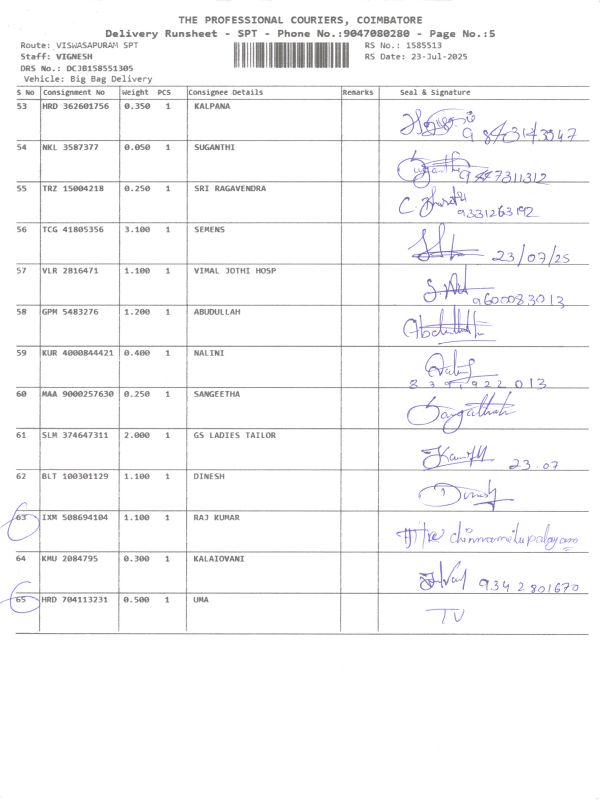 THE PROFESSIONAL COURIERS, COIMBATORE
Delivery Runsheet - SPT - Phone No.:9047080280 - Page No.:5
Route: VISWASAPURAM SPT
RS No.: 1585513
Staff: VIGNESH
RS Date: 23-Jul-2025
DRS No.: DCJB158551305
Vehicle: Big Bag Delivery
S No Consignment No Weight PCS Consignee Details Remarks Seal & Signature
53 HRD 362601756 0.350 1 KALPANA
54 NKL 3587377 0.050 1 SUGANTHI
55 TRZ 15004218 0.250 1 SRI RAGAVENDRA
C. 9331263192
56 TCG 41805356 3.100 1 SEMENS
23/07/25
57 VLR 2816471 1.100 1 VIMAL JOTHI HOSP
9600083013
58 GPM 5483276 1.200 1 ABUDULLAH
59 KUR 4000844421 0.400 1 NALINI
60 MAA 9000257630 0.250 1 SANGEETHA
61 SLM 374647311 2.000 1 GS LADIES TAILOR
23.07
62 BLT 100301129 1.100 1 DINESH
Dinesh
63 IXM 508694104 1.100 1 RAJ KUMAR
64 KMU 2084795 0.300 1 KALAIOVANI
9342801670
65 HRD 704113231 0.500 1 UMA
TV